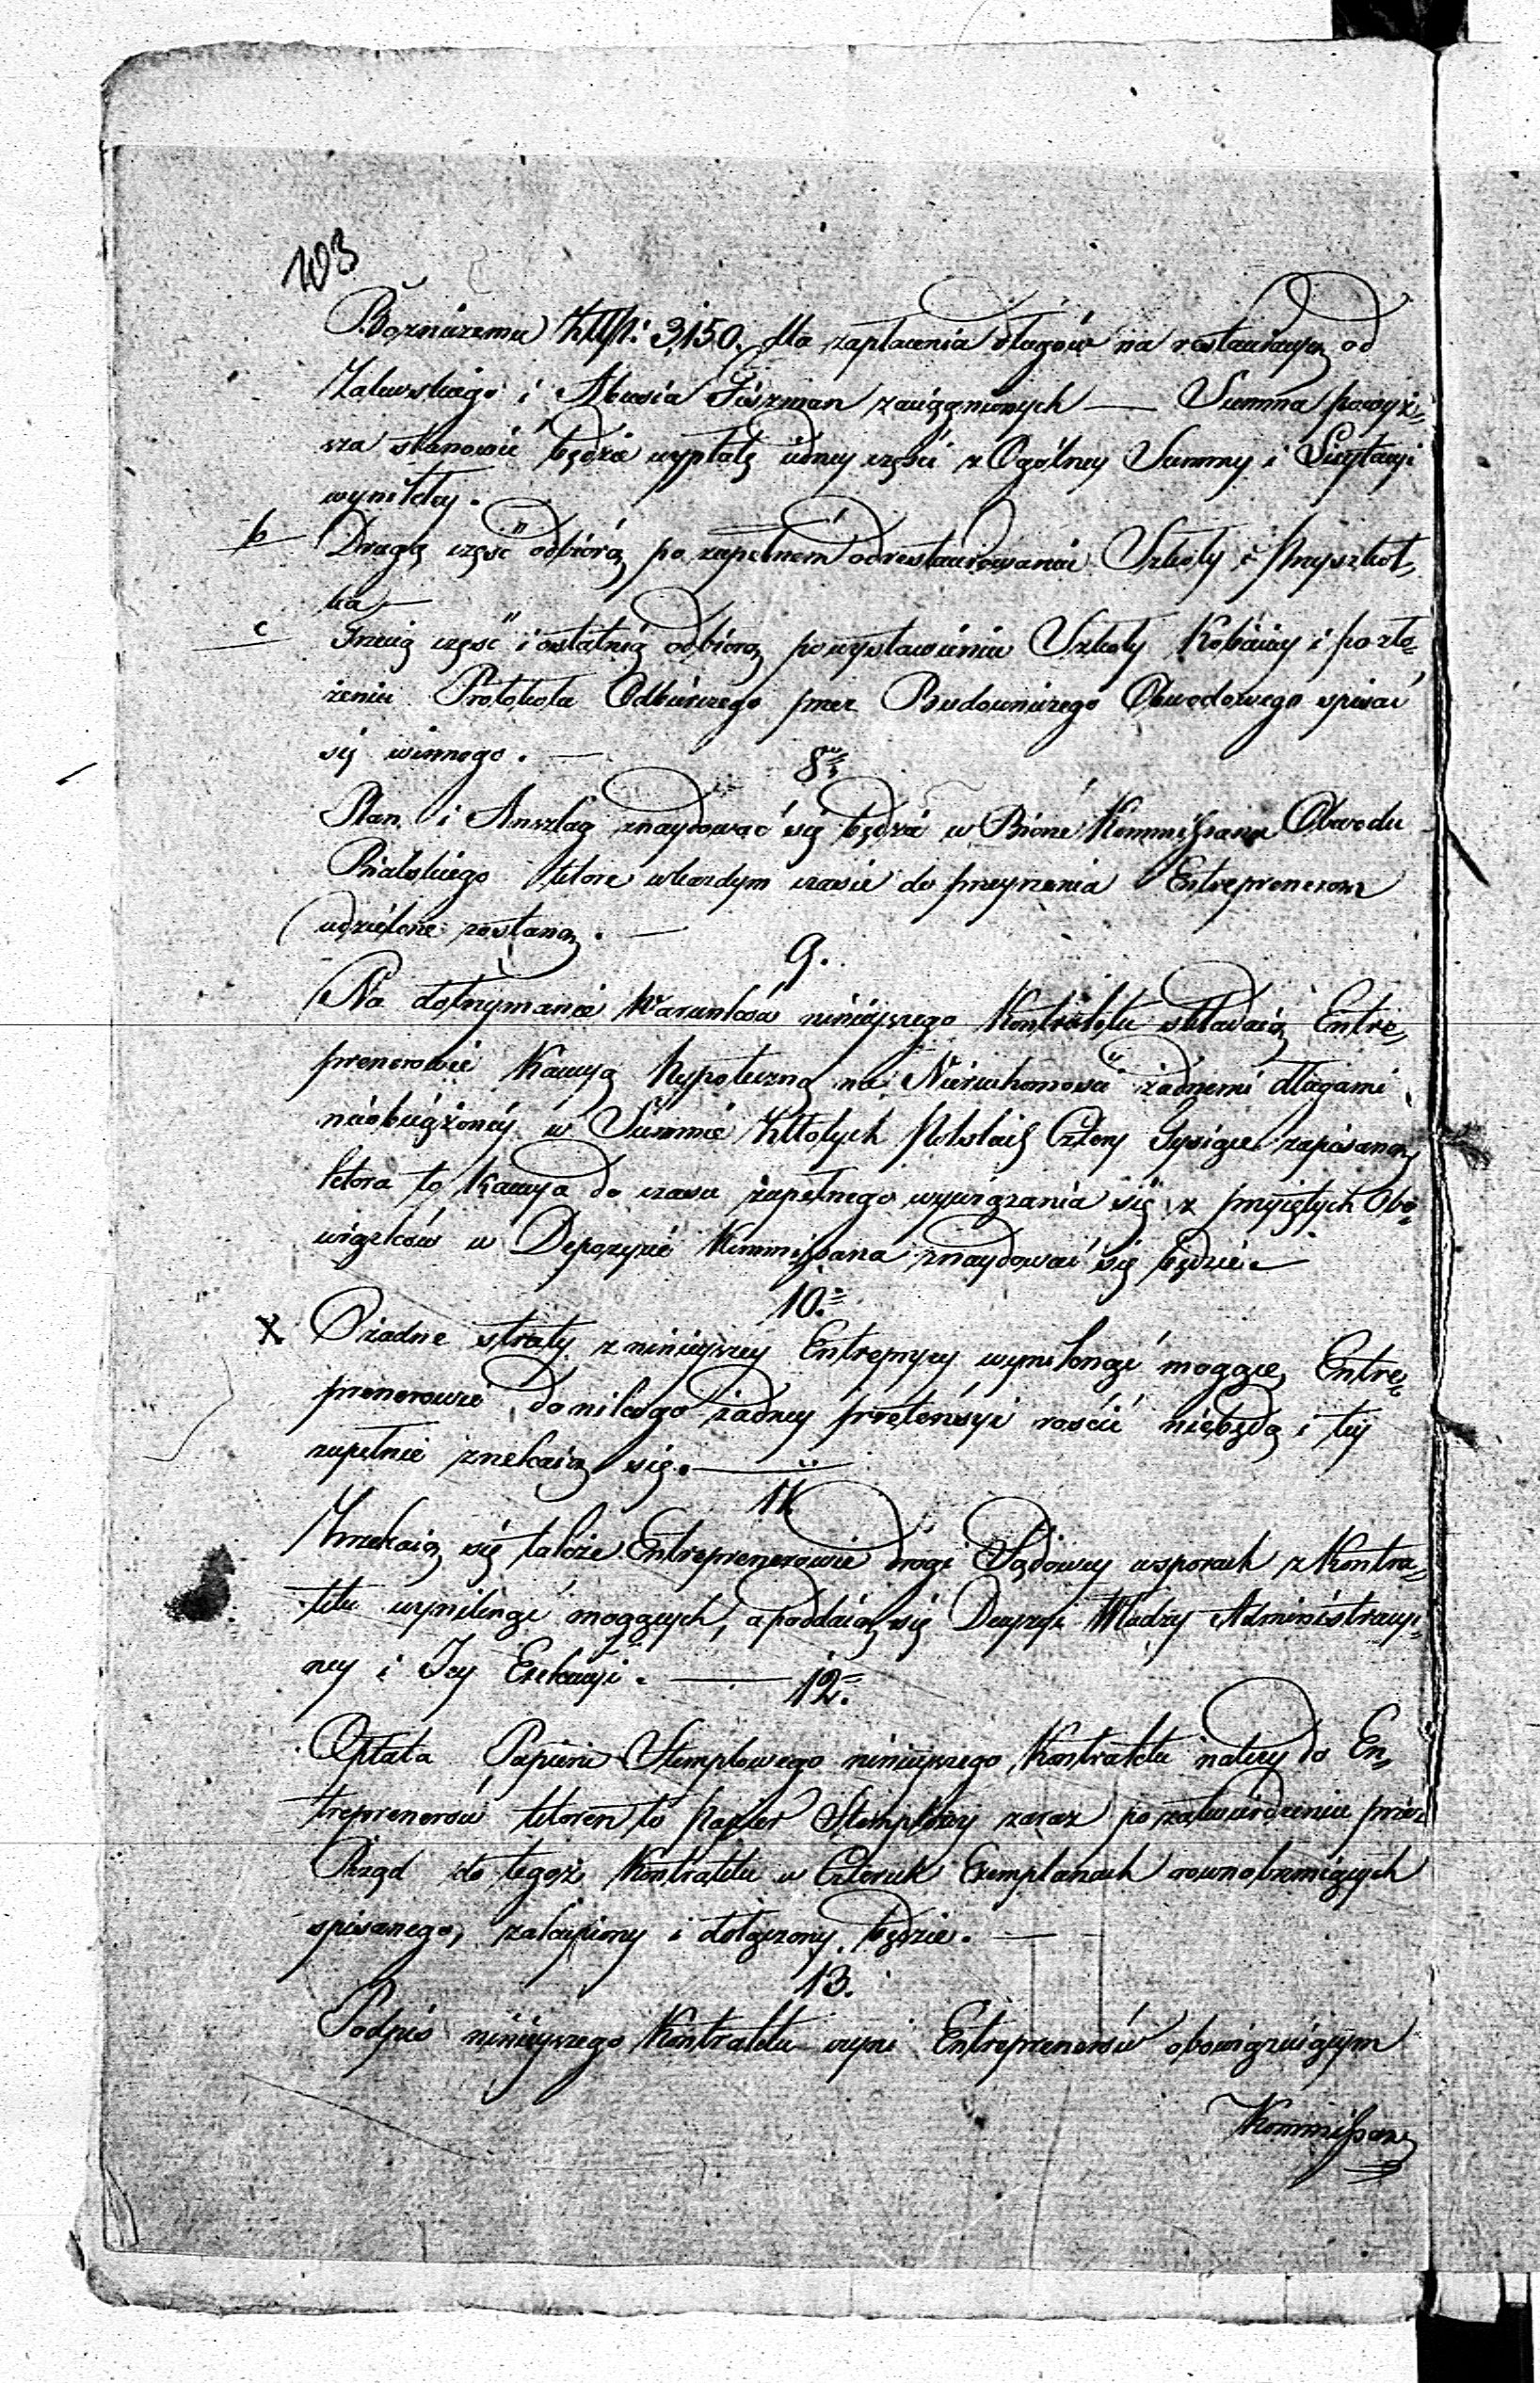 103
Bożniczemu Złłp: 3,150. dla zapłacenia długów na restauracyą od
Zalewskiego i Abusia Fiszman zaciągnionych — Summa powyż=
sza stanowić będzie wypłatę iedney części z Ogólney Summy i Licytacyi
wynikłey.
b Drugą część odbiorą po zupełnem odrestaurowaniu Szkoły i Przyszkol,
ka —
c Trzecią część i ostatnią odbiorą po wystawieniu Szkoły Kobiécey i po zło=
żeniu Protokołu Odbiorczego przez Budowniczego Obwodowego spisać
się winnego. —
8.
Plan i Anszlag znaydować się będzie w Biorze Kommissarza Obwodu
Bialskiego które w każdym czasie do przeyrzenia Entreprenerom
udzielone zostaną. —
9.
Na dotrzymanie Warunków ninieyszego Kontraktu składaią Entre,
prenerowie Kaucyą Hypoteczną na Nieruchomości żadnemi długami
nieobciążoney w Summie Złłotych Polskich Cztery Tysiące zapisaną
która to Kaucya do czasu zupełnego wywiązania się z przyiętych Obo=
wiązków w Depozycie Kommissarza znaydować się będzie —
10.
X O żadne straty z ninieyszey Entrepryzy wyniknąć mogące, Entre=
prenerowie do nikogo żadney pretensyi rościć niebędą i tey
zupełnie zrzekaią się. —
11.
Zrzekaią się także Entreprenerowie drogi Sądowey w sporach z Kontra=
ktu wyniknąć mogących, a poddaią się Decyzyi Władzy Administracyi=
ney i Jey Exekucyi. —
12.
Opłata Papieru Stemplowego ninieyszego Kontraktu należy do En,
treprenerów któren to Papier Stemplowy zaraz po zatwierdzeniu przez
Rząd do tegoż Kontraktu w Czterech Exemplarzach rownobrzmiących
spisanego, zakupiony i dołączony będzie. —
13.
Podpis ninieyszego Kontraktu czyni Entreprenerów obowiązuiącym
Kommissarz